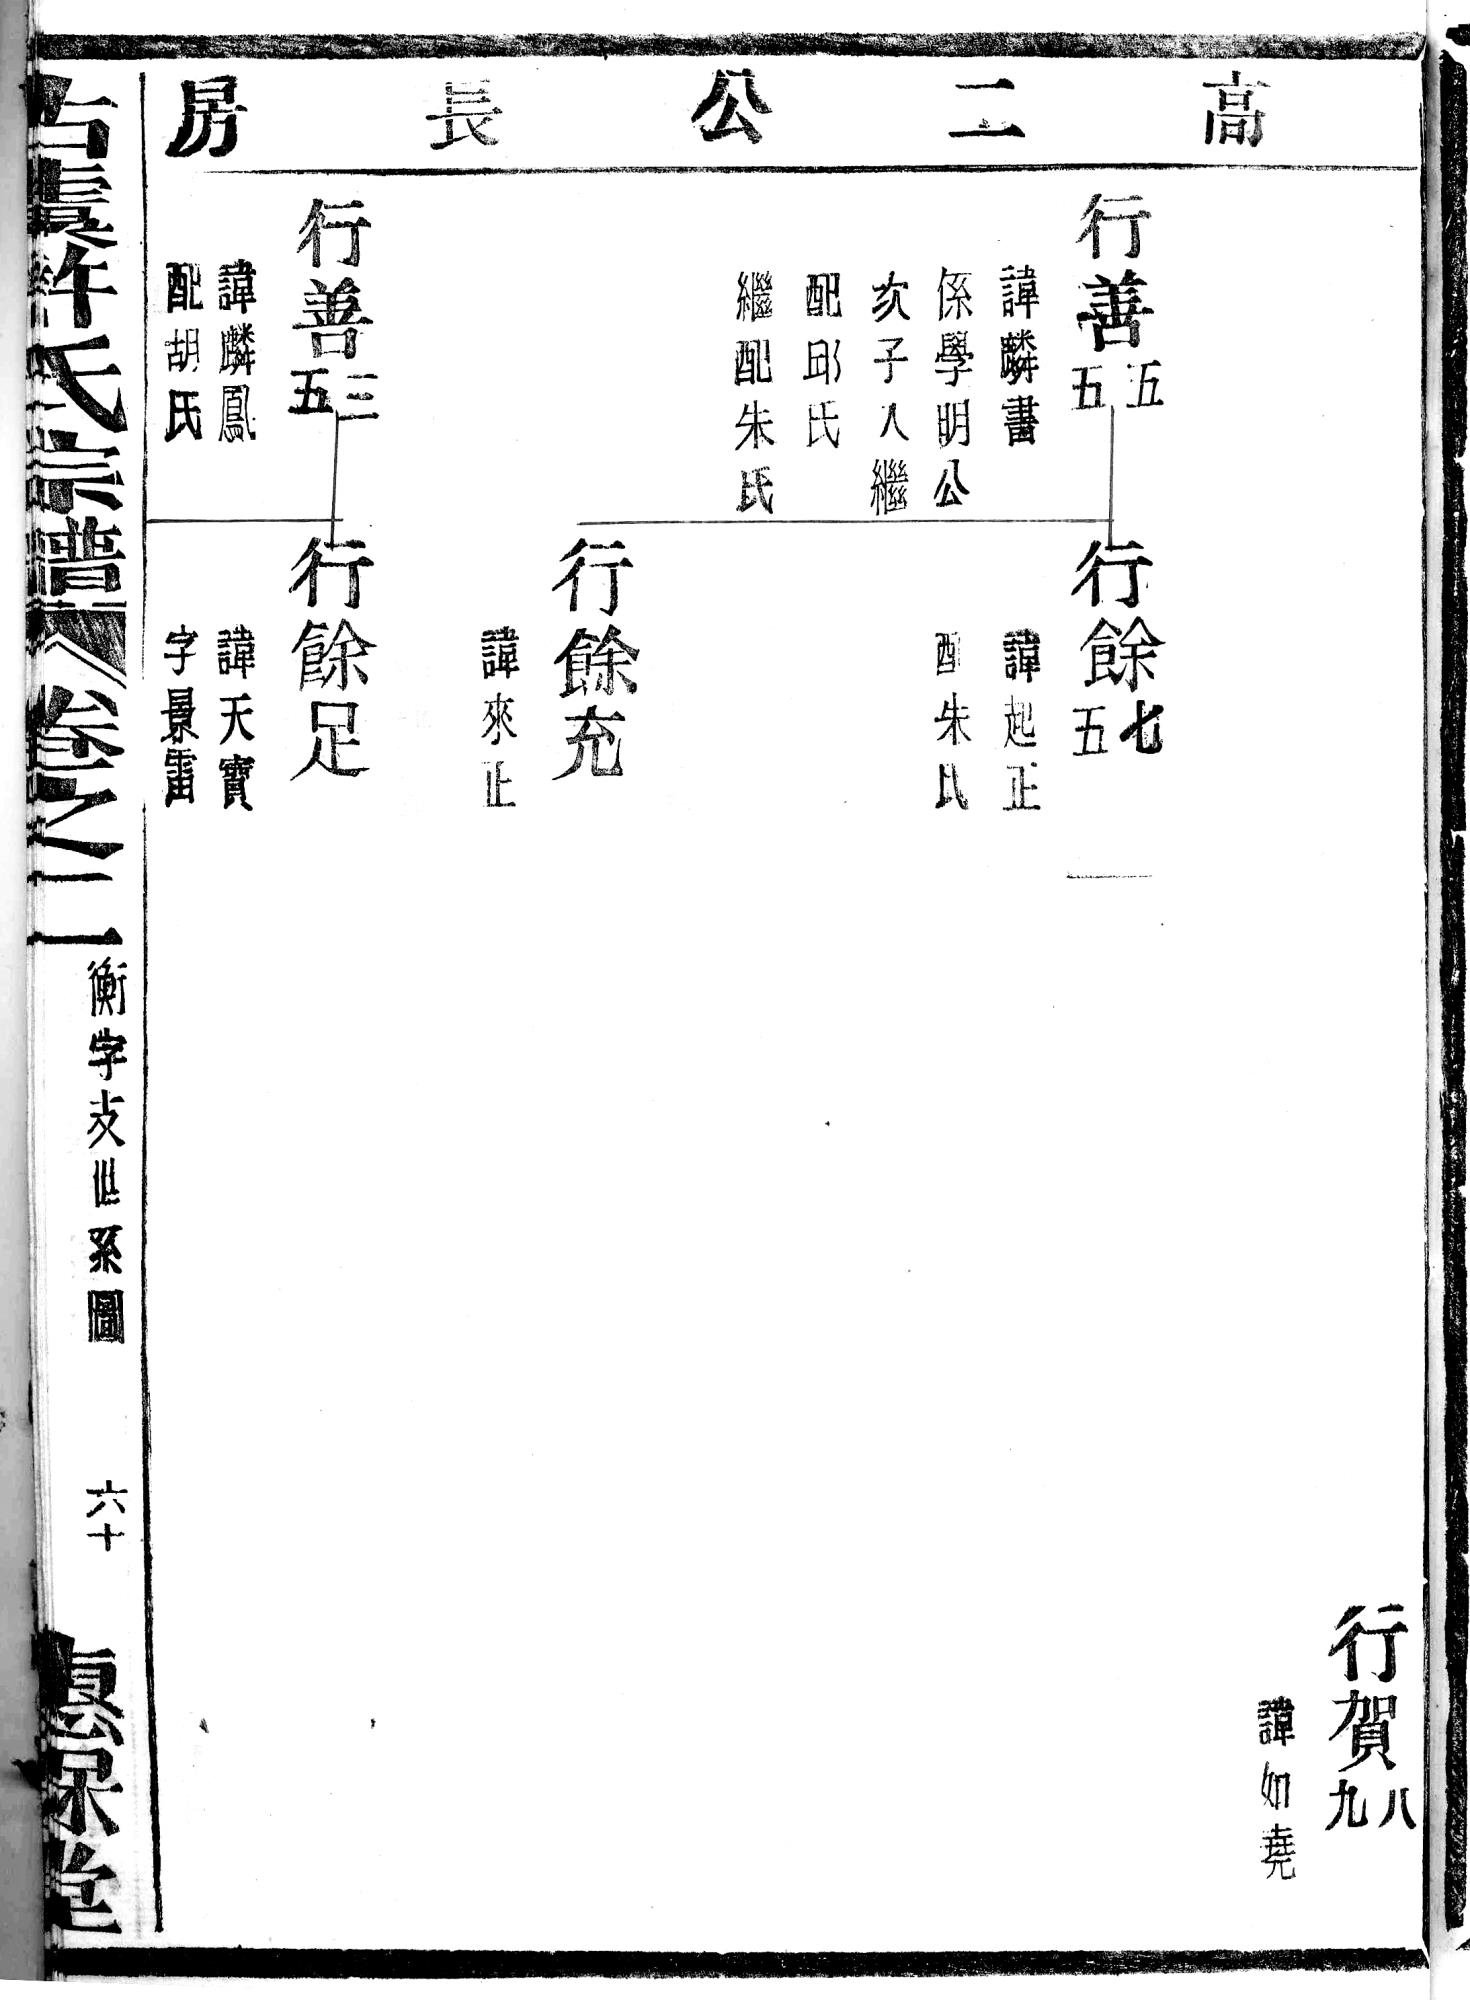 高二公長房
行賀八九
諱如堯
行善五五
諱麟書
係學明公
次子入繼
配邱氏
繼配朱氏
行餘七五
諱起正
配朱氏
行餘充
諱來正
行善三五
諱麟鳳
配胡氏
行餘足
諱天寶
字景雷
古虞許氏宗譜
卷之二
衡字支世系圖
六十
堂